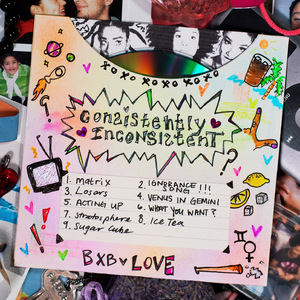 Consistently
INCONSISTENT
1. matrix
2. IGNORANCE !!!
SONG
3. Losers
4. VENUS IN GEMINI
5. ACTING UP
6. WHAT YOU WANT?
7. stratosphere
8. Ice Tea
9. Sugar Cube
BXB ♥ LOVE